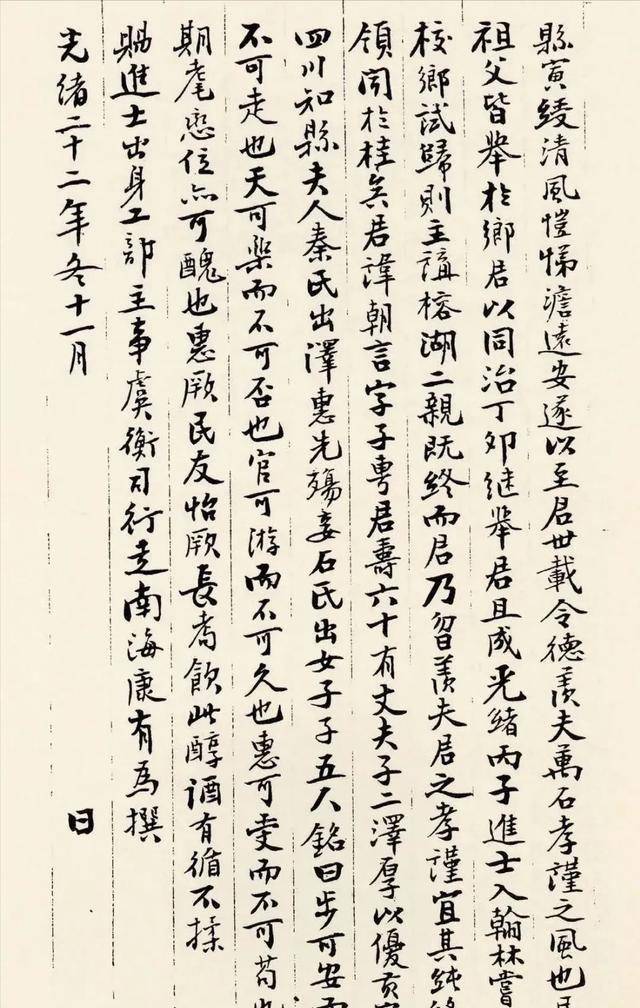 縣寅綾清風愷悌澹遠安遂以至君世載令德羨夫萬石孝謹之風也
祖父皆舉於鄉君以同治丁卯継舉君且成光緒丙子進士入翰林嘗
校鄉試歸則主講榕湖二親既終而君乃曶羨夫君之孝謹宜其純
領閣於桂矣君諱朝言字子專君壽六十有丈夫子二澤厚以優貢
四川知縣夫人秦氏出澤惠先殤妾石氏出女子子五人銘曰步可安而
不可走也天可樂而不可否也官可游而不可久也惠可愛而不可苟也
期耄戀位亦可醜也惠厥民友怡厥長耇飲此醇酒有循不揉
賜進士出身工部主事虞衡司行走南海康有為撰
光緒二十二年冬十一月 日